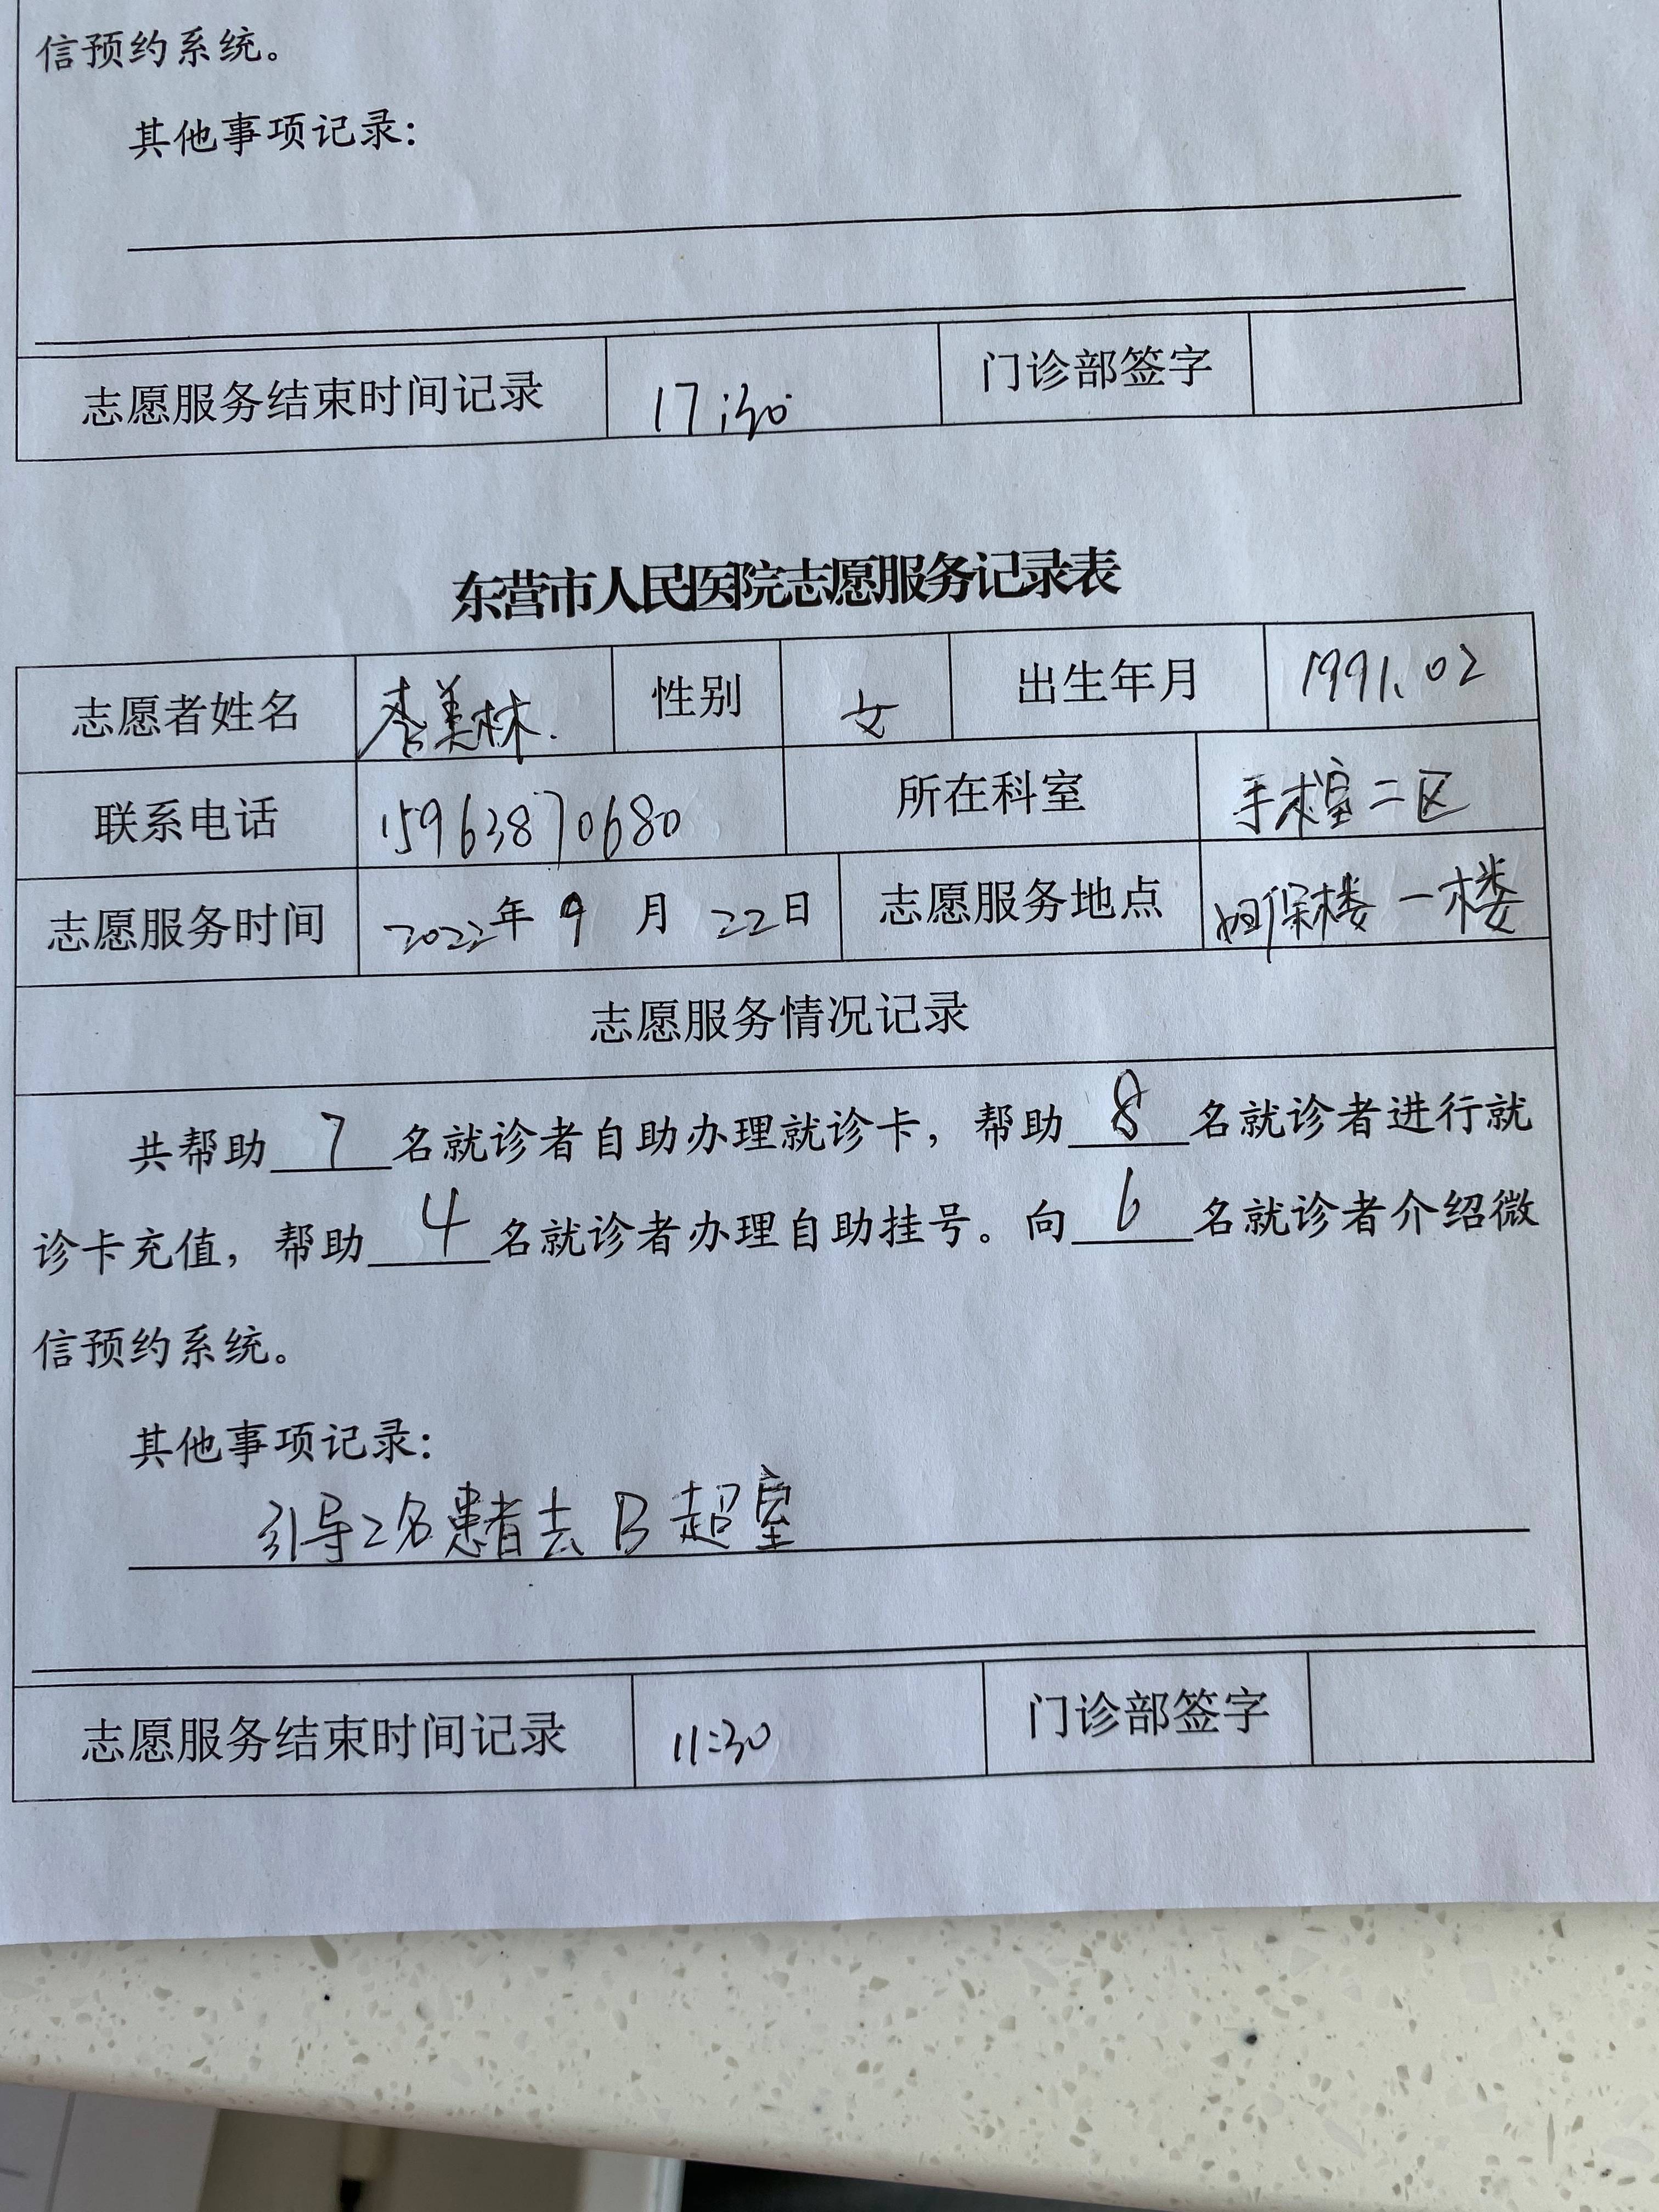 信预约系统。
其他事项记录：
志愿服务结束时间记录 17:30 门诊部签字
东营市人民医院志愿服务记录表
志愿者姓名 李美林. 性别 女 出生年月 1991.02
联系电话 15963870680 所在科室 手术室二区
志愿服务时间 2022年 9 月 22日 志愿服务地点 妇保楼一楼
志愿服务情况记录
共帮助 7 名就诊者自助办理就诊卡，帮助 8 名就诊者进行就
诊卡充值，帮助 4 名就诊者办理自助挂号。向 6 名就诊者介绍微
信预约系统。
其他事项记录：
引导2名患者去B超室
志愿服务结束时间记录 11:30 门诊部签字